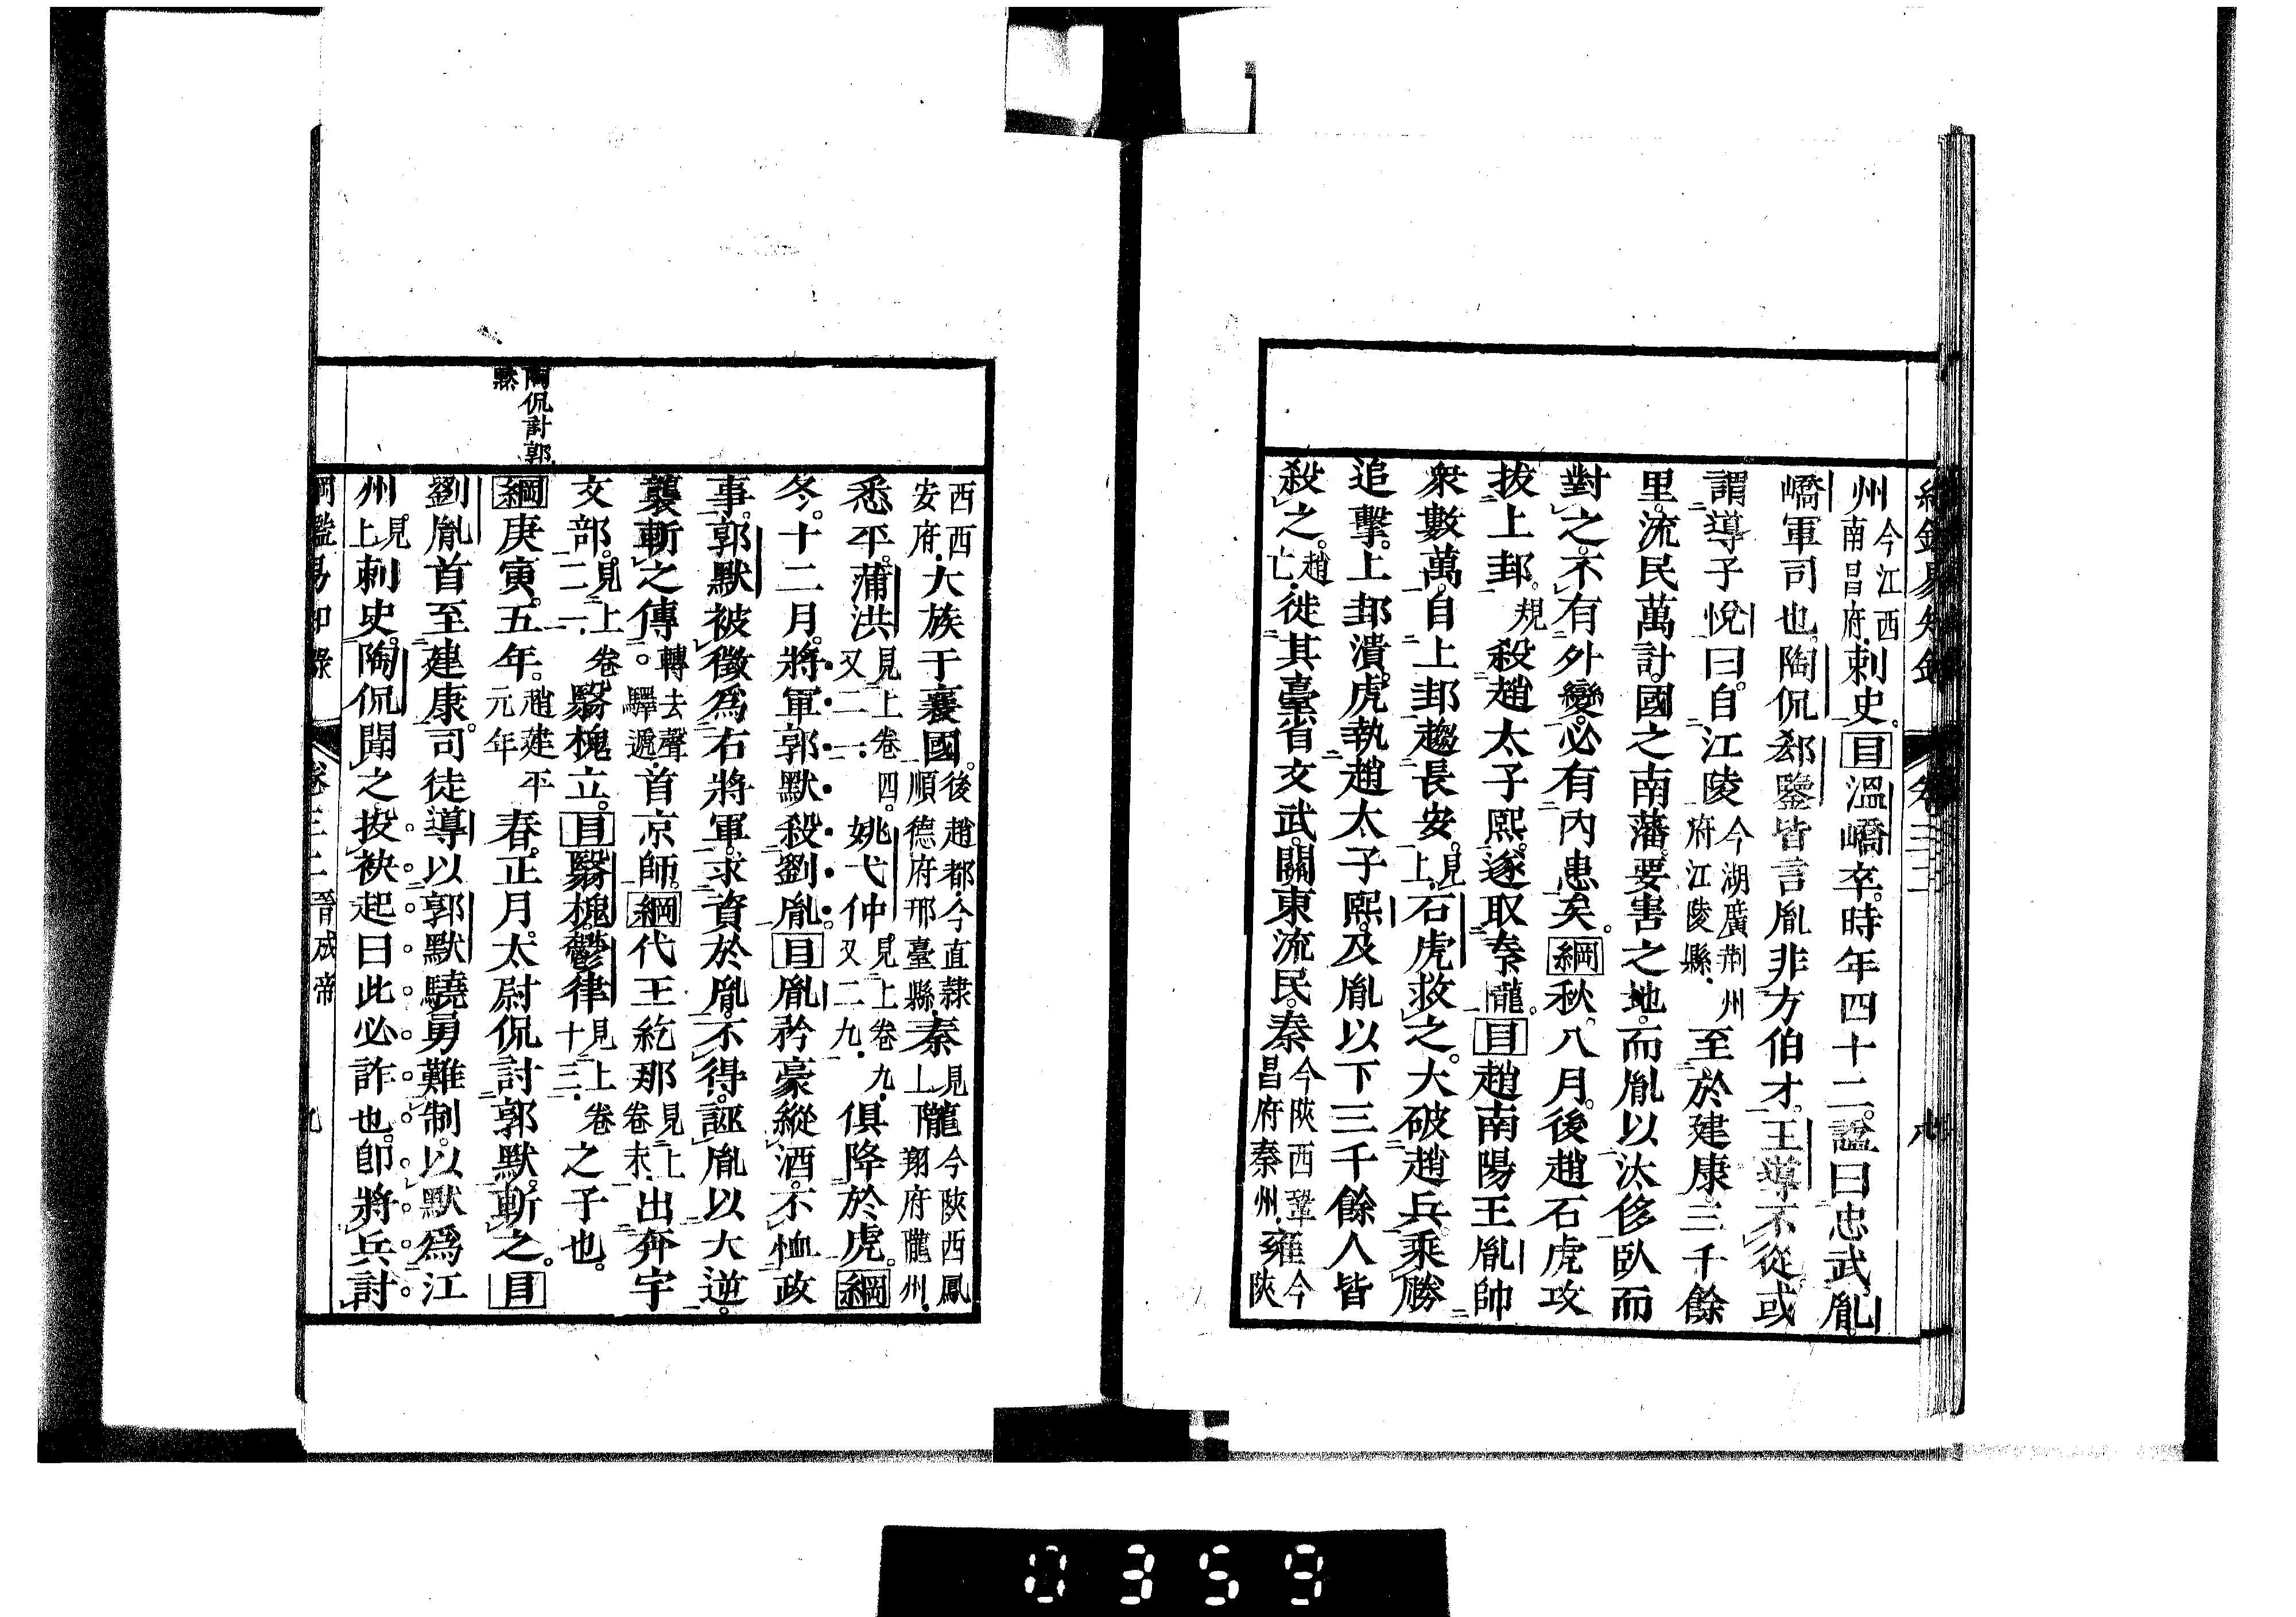 綱鑑易知錄
卷三二
州今江西南昌府.刺史。目溫嶠卒。時年四十二。諡曰忠武。胤
嶠軍司也。陶侃郄鑒皆言胤非方伯才。王導不從。或
謂導子悅曰。自江陵今湖廣荆州府江陵縣.至於建康。三千餘
里。流民萬計。國之南藩。要害之地。而胤以汰侈臥而
對之。不有外變。必有內患矣。綱秋。八月。後趙石虎攻
拔上邽。規殺趙太子熙。遂取秦隴。目趙南陽王胤帥
衆數萬。自上邽趨長安。見上.石虎救之。大破趙兵。乘勝
追擊。上邽潰。虎執趙太子熙。及胤以下三千餘人皆
殺之。趙亡.徙其臺省文武。關東流民。秦今陝西鞏昌府秦州.雍今陝
西西安府.大族于襄國。後趙都.今直隸順德府邢臺縣.秦見上隴今陝西鳳翔府隴州.
悉平。蒲洪見上卷四又二一.姚弋仲見上卷九又二九.俱降於虎。綱
冬。十二月。將軍郭默殺劉胤。目胤矜豪縱酒。不恤政
事。郭默被徵爲右將軍。求資於胤。不得。誣胤以大逆。
襲斬之傳轉去聲。驛遞.首京師。綱代王紇那見上卷末.出奔宇
文部。見上卷二一.翳槐立。目翳槐。鬱律見上卷十三.之子也。
綱庚寅。五年。趙建平元年春。正月。太尉侃討郭默。斬之。目
劉胤首至建康。司徒導以郭默驍勇難制。以默爲江
州。見上刺史。陶侃聞之。投袂起曰此必詐也。卽將兵討
陶侃討郭
默
綱鑑易知錄
卷三二 晉成帝 九
0359